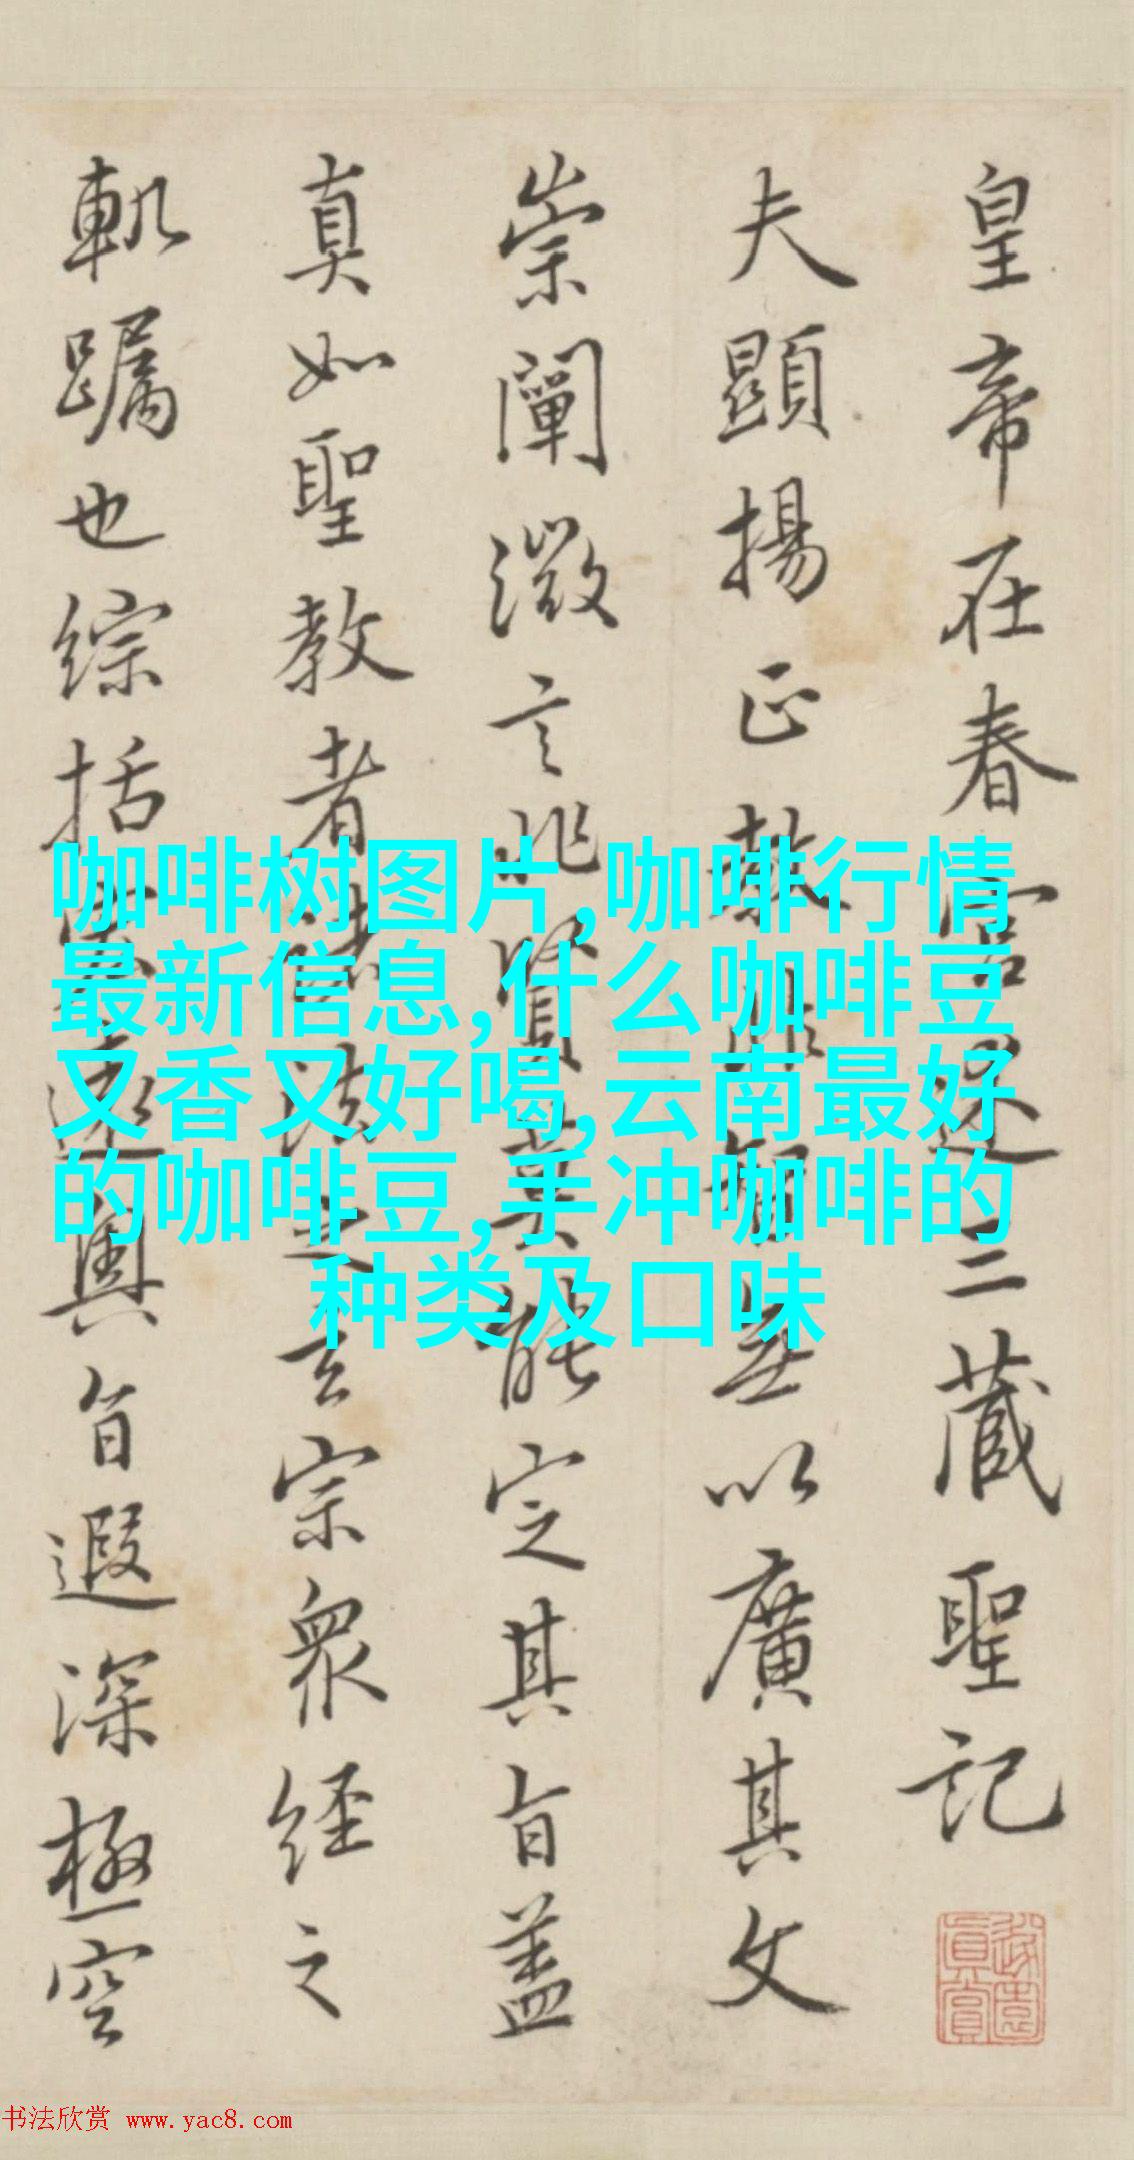 皇帝在春宮述三藏聖記
夫顯揚正教非智無以廣其文
崇闡微言非賢莫能定其旨蓋
真如聖教者諸法之玄宗眾經之
軌躅也綜括宏遠奧旨遐深極空
咖啡树图片,咖啡行情
最新信息,什么咖啡豆
又香又好喝,云南最好
的咖啡豆,手冲咖啡的
种类及口味
书法欣赏 www.yac8.com